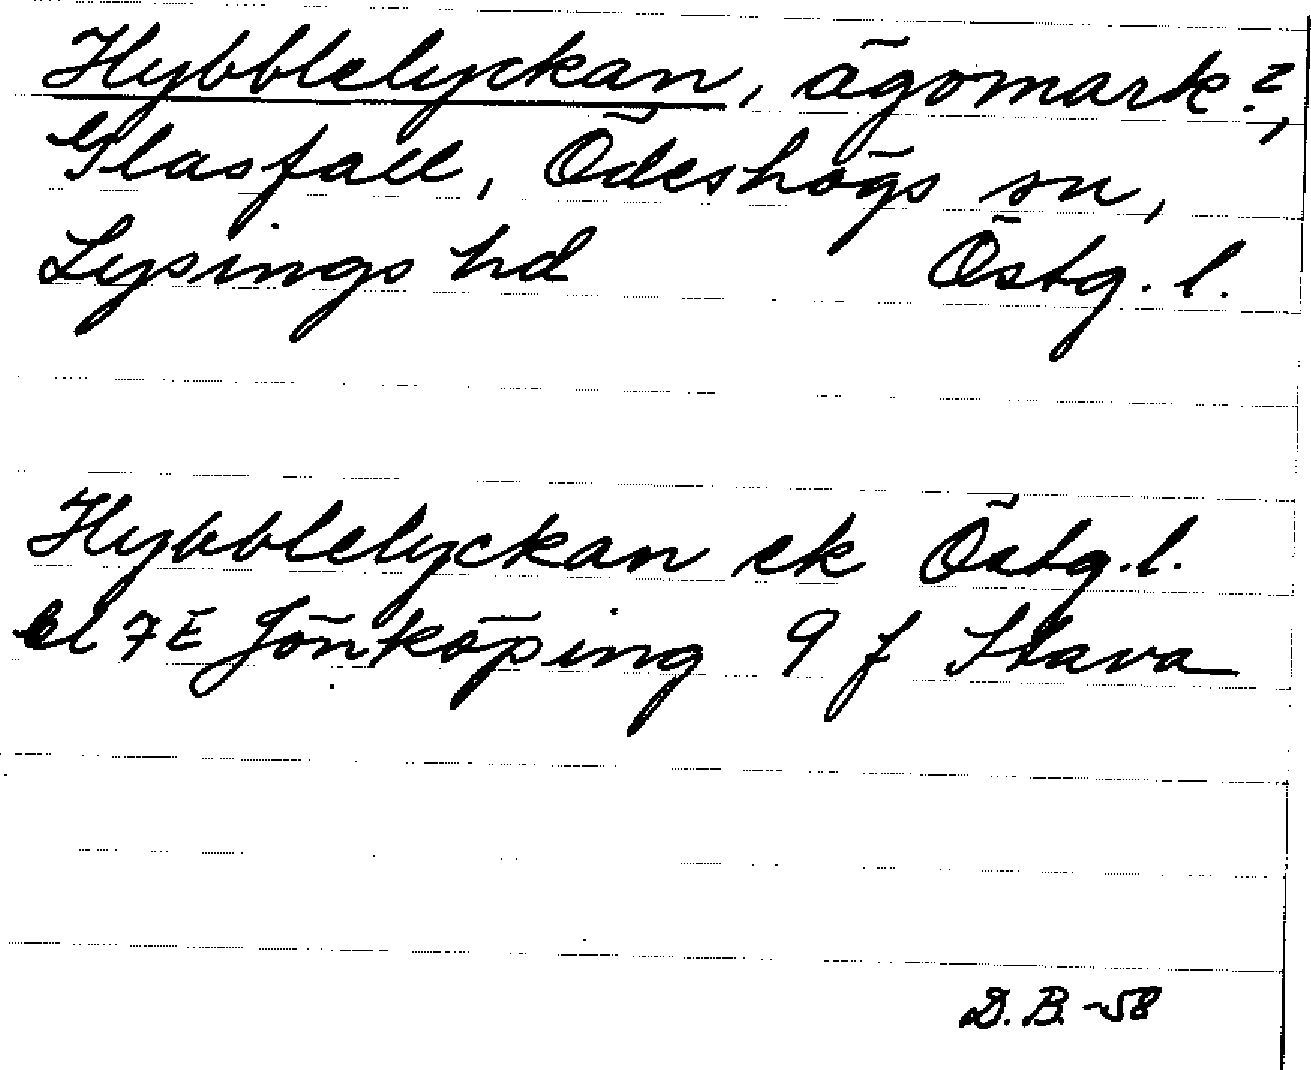 Hybblelyckan, ägomark?,
Glasfall, Ödeshögs sn,
Lysings hd Östg. l.
Hybblelyckan ek Östg. l.
bl 7E Jönköping 9 f Stava
D. B. -58